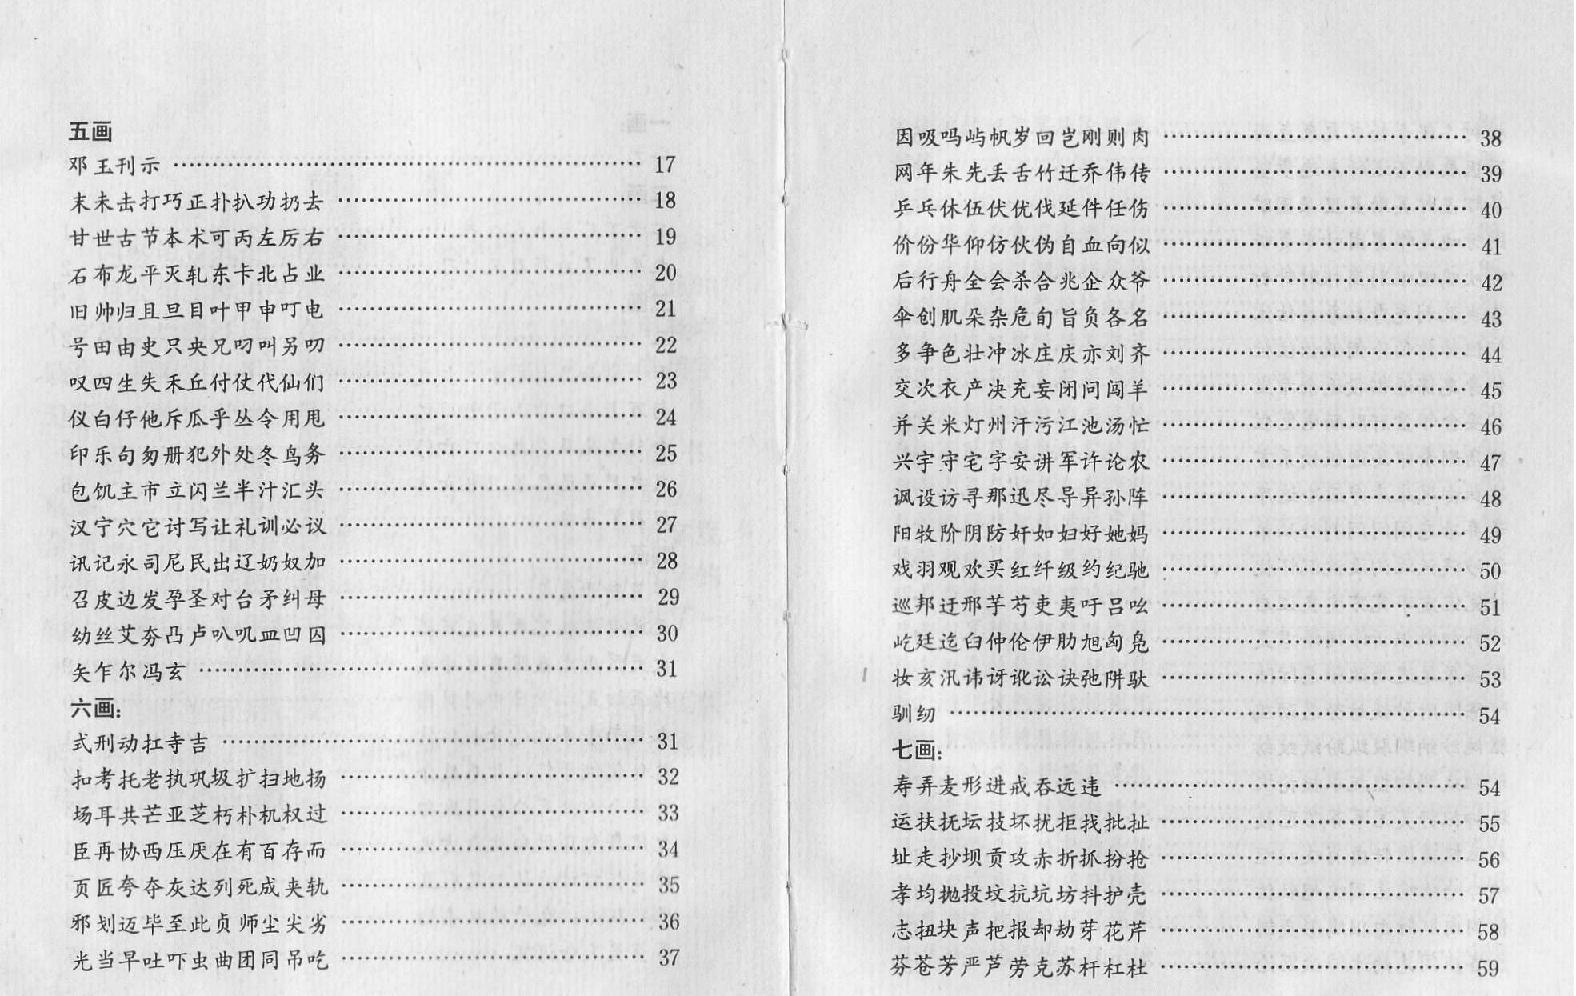 五画
邓玉刊示 17
末未击打巧正扑扒功扔去 18
甘世古节本术可丙左厉右 19
石布龙平灭轧东卡北占业 20
旧帅归且旦目叶甲申叮电 21
号田由史只央兄叼叫另叨 22
叹四生失禾丘付仗代仙们 23
仪白仔他斥瓜乎丛令用甩 24
印乐句匆册犯外处冬鸟务 25
包饥主市立闪兰半汁汇头 26
汉宁穴它讨写让礼训必议 27
讯记永司尼民出辽奶奴加 28
召皮边发孕圣对台矛纠母 29
幼丝艾夯凸卢叭叽皿凹囚 30
矢乍尔冯玄 31
六画:
式刑动扛寺吉 31
扣考托老执巩圾扩扫地扬 32
场耳共芒亚芝朽朴机权过 33
臣再协西压厌在有百存而 34
页匠夸夺灰达列死成夹轨 35
邪划迈毕至此贞师尘尖劣 36
光当早吐吓虫曲团同吊吃 37
因吸吗屿帆岁回岂刚则肉 38
网年朱先丢舌竹迁乔伟传 39
乒乓休伍伏优伐延件任伤 40
价份华仰仿伙伪自血向似 41
后行舟全会杀合兆企众爷 42
伞创肌朵杂危旬旨负各名 43
多争色壮冲冰庄庆亦刘齐 44
交次衣产决充妄闭问闯羊 45
并关米灯州汗污江池汤忙 46
兴宇守宅字安讲军许论农 47
讽设访寻那迅尽导异孙阵 48
阳牧阶阴防奸如妇好她妈 49
戏羽观欢买红纤级约纪驰 50
巡邦迂邢芋芍吏夷吁吕吆 51
屹廷迄臼仲伦伊肋旭匈凫 52
妆亥汛讳讶讹讼诀弛阱驮 53
驯纫 54
七画:
寿弄麦形进戒吞远违 54
运扶抚坛技坏扰拒找批扯 55
址走抄坝贡攻赤折抓扮抢 56
孝均抛投坟抗坑坊抖护壳 57
志扭块声把报却劫芽花芹 58
芬苍芳严芦劳克苏杆杠杜 59